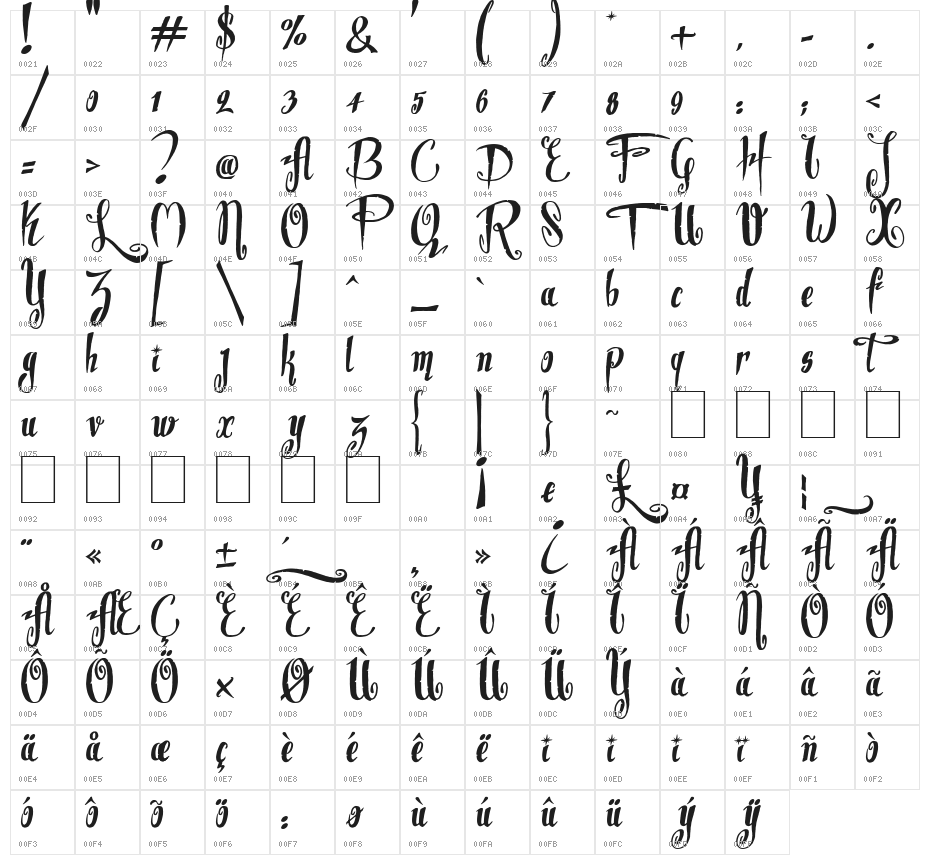 ! " # $ % & ' ( ) * + , - .
0021 0022 0023 0024 0025 0026 0027 0028 0029 002A 002B 002C 002D 002E
/ 0 1 2 3 4 5 6 7 8 9 : ; <
002F 0030 0031 0032 0033 0034 0035 0036 0037 0038 0039 003A 003B 003C
= > ? @ A B C D E F G H I J
003D 003E 003F 0040 0041 0042 0043 0044 0045 0046 0047 0048 0049 004A
K L M N O P Q R S T U V W X
004B 004C 004D 004E 004F 0050 0051 0052 0053 0054 0055 0056 0057 0058
Y Z [ \ ] ^ _ ` a b c d e f
0059 005A 005B 005C 005D 005E 005F 0060 0061 0062 0063 0064 0065 0066
g h i j k l m n o p q r s t
0067 0068 0069 006A 006B 006C 006D 006E 006F 0070 0071 0072 0073 0074
u v w x y z { | } ~
0075 0076 0077 0078 0079 007A 007B 007C 007D 007E 0080 008B 008C 0091
¡ ¢ £ ¤ ¥ ¦
0092 0093 0094 0098 009C 009F 00A0 00A1 00A2 00A3 00A4 00A5 00A6 00A7
¨ « ° ± ´ ¸ » ¿ À Á Â Ã Ä
00A8 00AB 00B0 00B1 00B4 00B8 00BB 00BF 00C0 00C1 00C2 00C3 00C4
Å Æ Ç È É Ê Ë Ì Í Î Ï Ñ Ò Ó
00C5 00C6 00C7 00C8 00C9 00CA 00CB 00CC 00CD 00CE 00CF 00D1 00D2 00D3
Ô Õ Ö × Ø Ù Ú Û Ü Ý à á â ã
00D4 00D5 00D6 00D7 00D8 00D9 00DA 00DB 00DC 00DD 00E0 00E1 00E2 00E3
ä å æ ç è é ê ë ì í î ï ñ ò
00E4 00E5 00E6 00E7 00E8 00E9 00EA 00EB 00EC 00ED 00EE 00EF 00F1 00F2
ó ô õ ö ÷ ø ù ú û ü ý ÿ
00F3 00F4 00F5 00F6 00F7 00F8 00F9 00FA 00FB 00FC 00FD 00FF